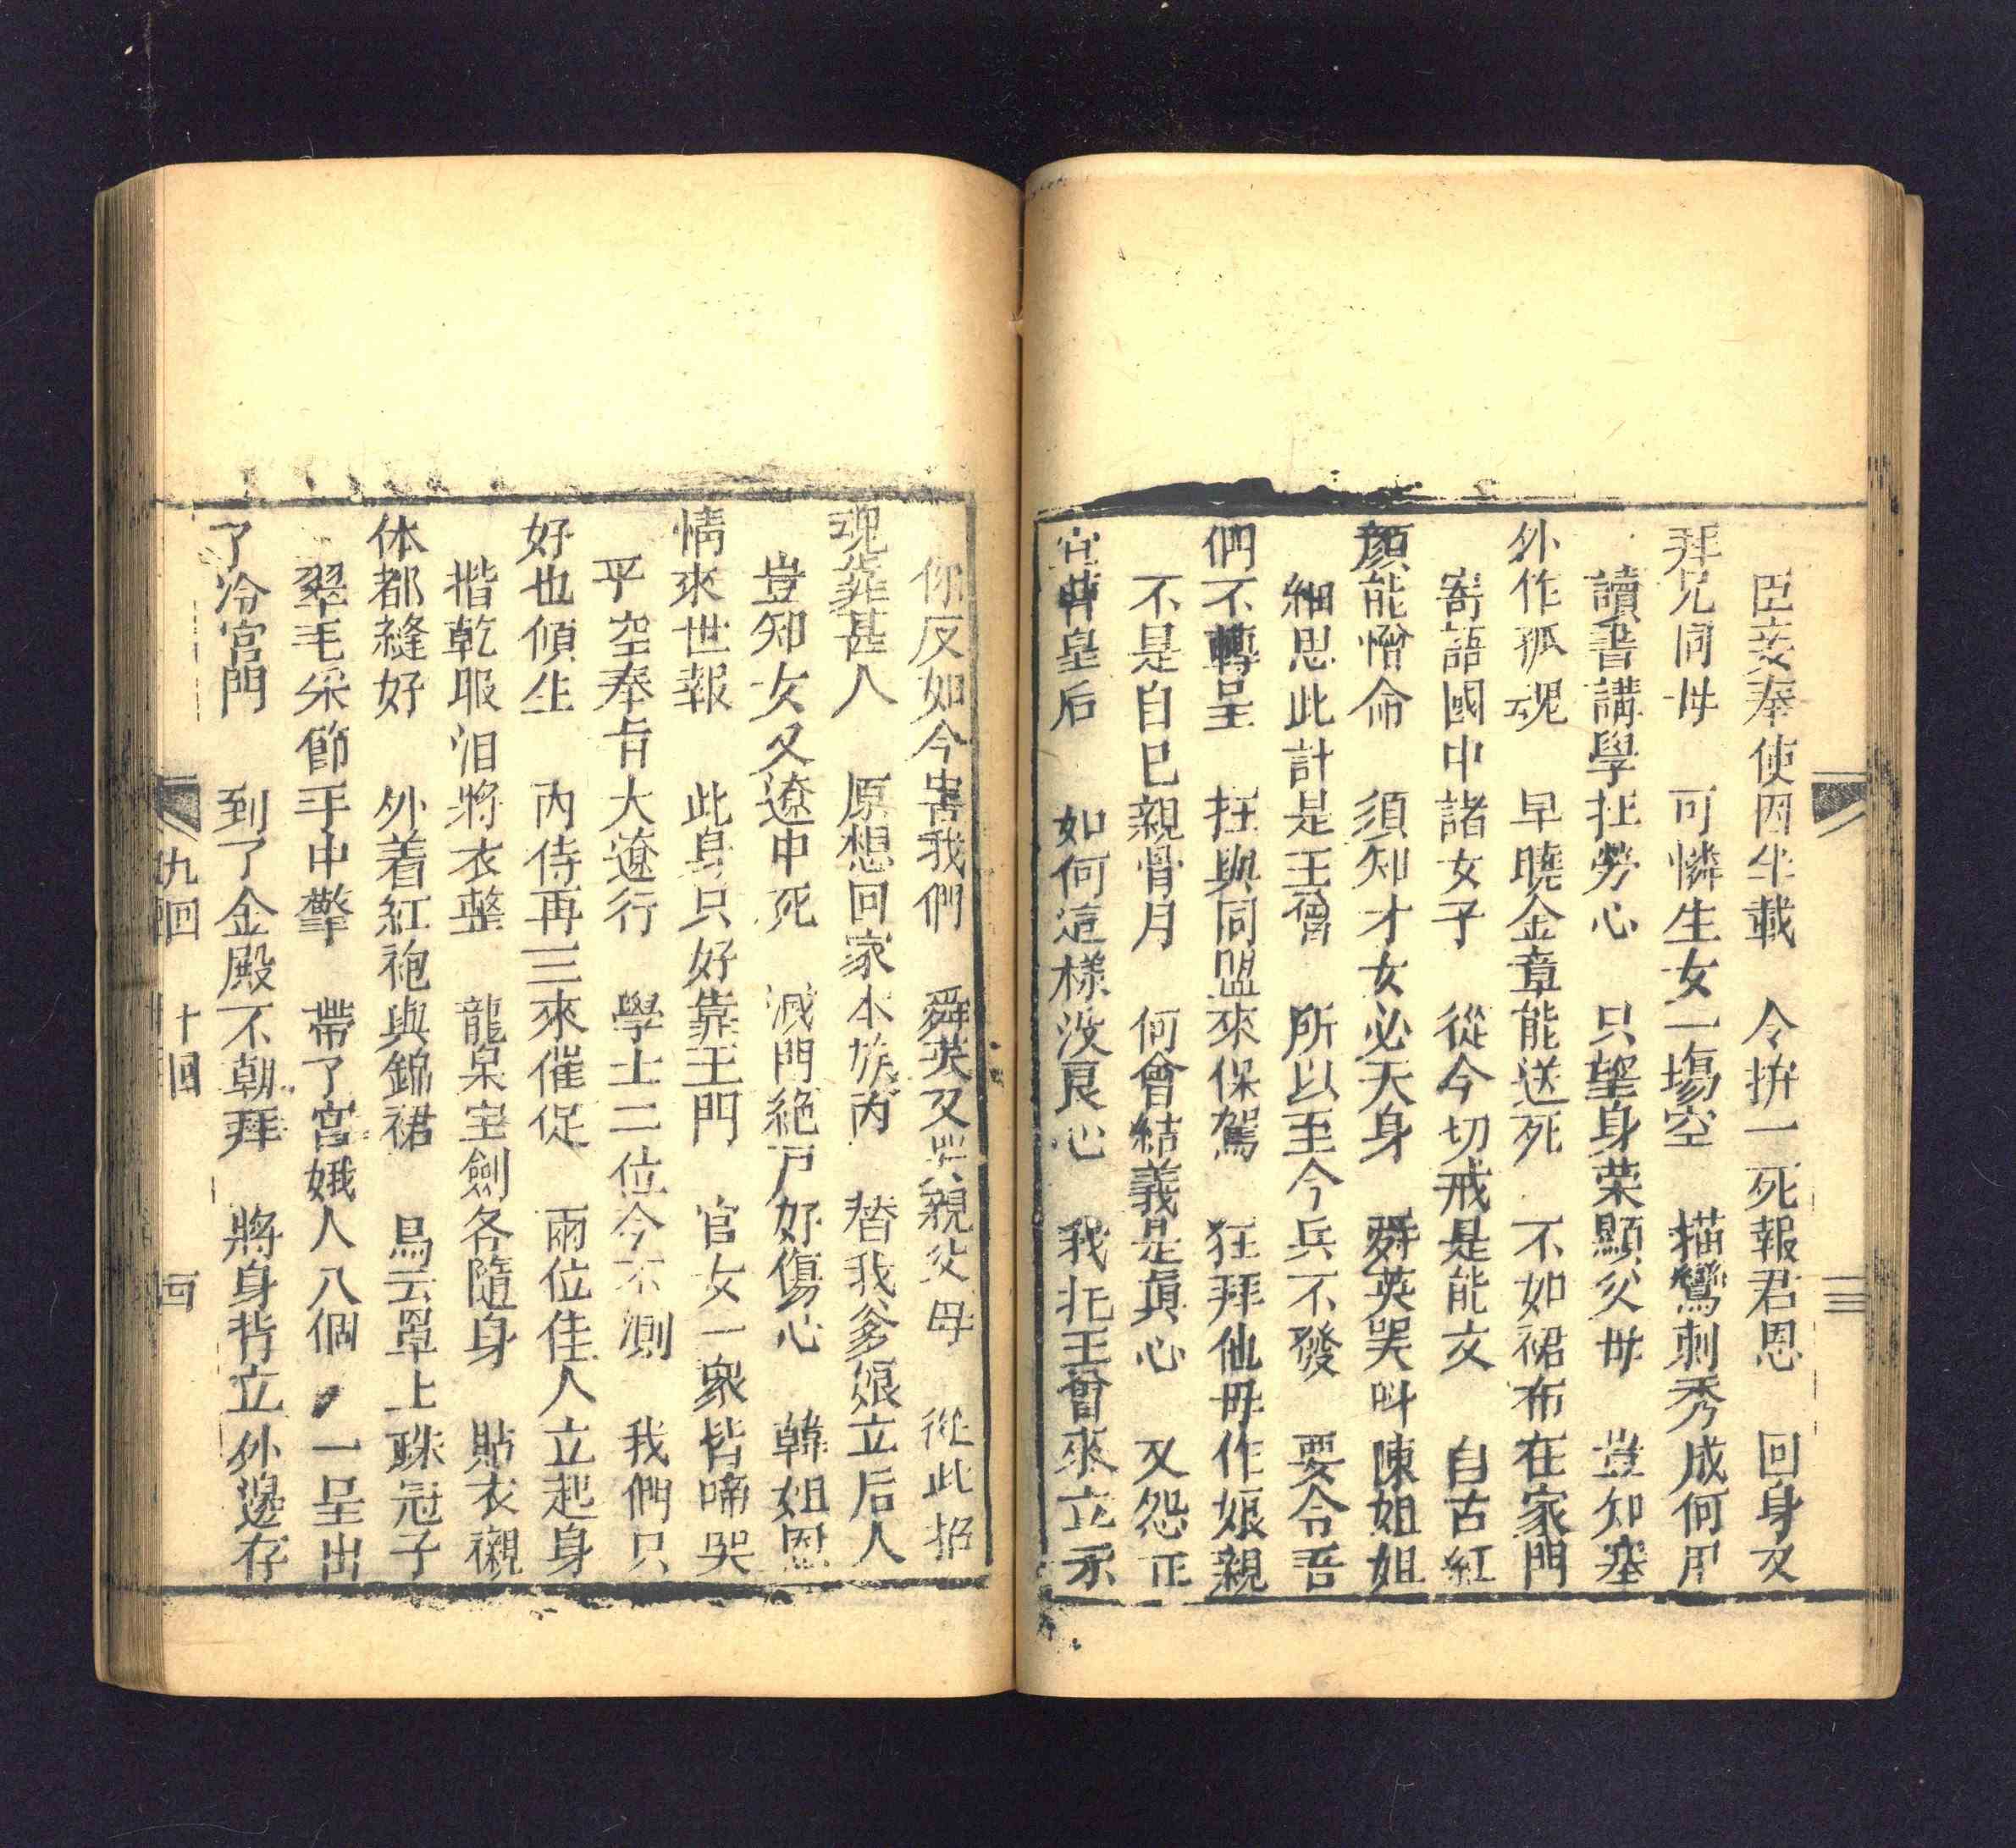 臣妾奉使因半載　令拚一死報君恩　回身又
拜兄同母　可憐生女一場空　描鸞刺秀成何用
讀書講學狂勞心　只望身荣顯父母　豈知塞
外作孤魂　早曉金章能送死　不如裙布在家門
寄語國中諸女子　從今切戒是能文　自古紅
顏能憎命　須知才女必天身　舜英哭呌陳姐姐
細思此計是王曾　所以至今兵不發　要令吾
們不轉呈　狂與同盟來保駕　狂拜仙母作娘親
不是自己親骨月　何曾結義是真心　又怨正
宫曹皇后　如何這樣没良心　我扎王曾來立宗
三
你反如今害我們　舜英又哭親父母　從此招
魂靠甚人　原想回家本族丙　替我爹娘立后人
豈知女又遼中死　滅門絶戸好傷心　韓姐恩
情來世報　此身只好靠王門　官女一衆皆啼哭
平空奉旨大遼行　學士二位今不測　我們只
好也傾生　內侍再三來催促　兩位佳人立起身
揩乾眼泪將衣整　龍泉宝劍各隨身　貼衣襯
体都縫好　外着紅袍與錦裙　烏云罩上珠冠子
翠毛采節手中擎　帶了宫娥人八個　一呈出
了冷宮門　到了金殿不朝拜　將身背立外邊存
九回　十回　四